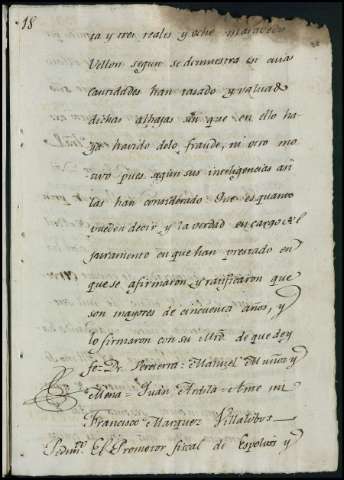 18
ta y tres reales y ocho maravedis
Vellon segun se demuestra en cuias
cantidades han tasado y valuado
dichas alhajas sin que en ello ha
ya havido dolo fraude, ni otro mo
tivo pues segun sus inteligencias asi
las han considerado Que es quanto
pueden decir y la verdad en cargo del
juramento en que han prestado en
que se afirmaron y ratificaron que
son mayores de cincuenta años, y
lo firmaron con su Mrd. de que doy
fe = Dr. Pereterra = Manuel Muños y
Mena = Juan Ardila = Ante mi
Francisco Marquez Villalobos
Pedimto. El Promotor fiscal de Espolios y